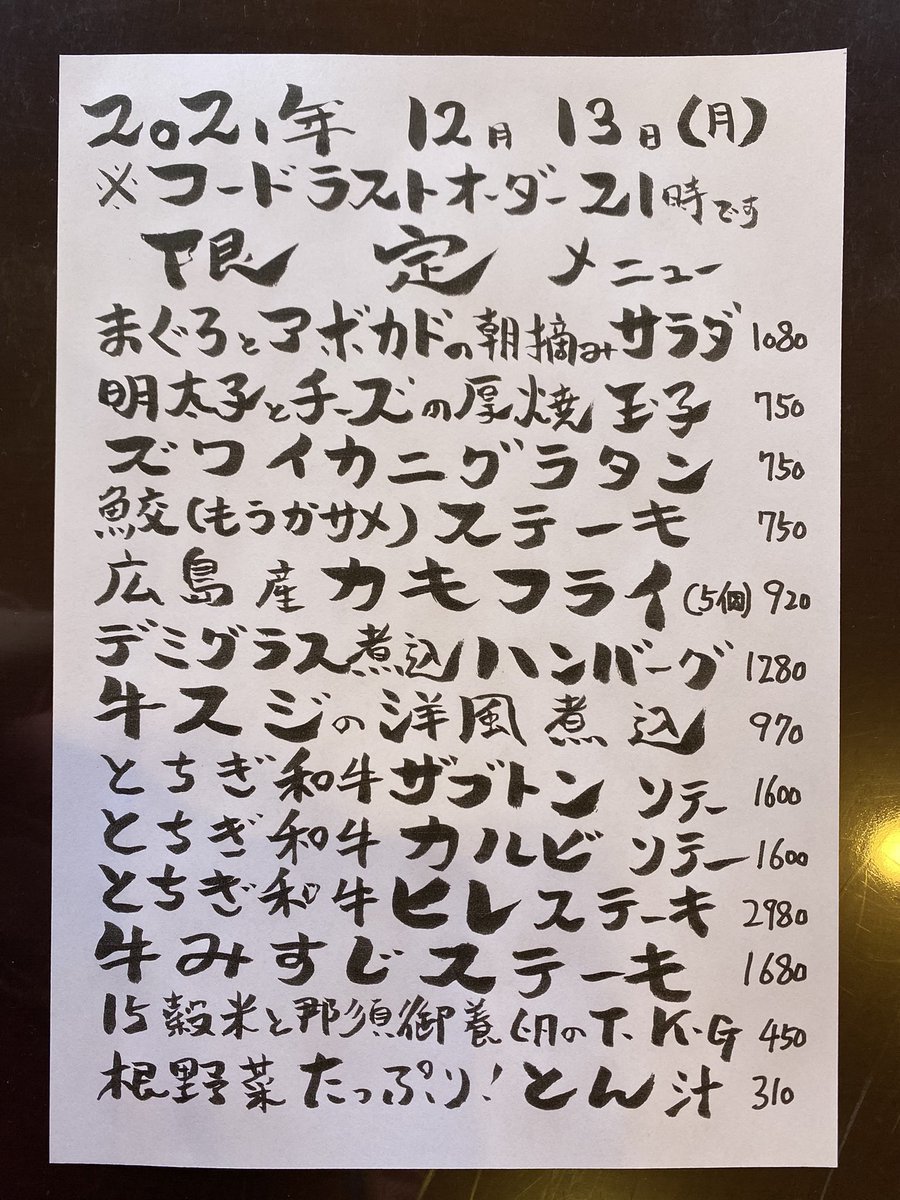 2021年 12月 13日(月)
※フードラストオーダー21時です
限定メニュー
まぐろとアボカドの朝摘みサラダ 1080
明太子とチーズの厚焼玉子 750
ズワイカニグラタン 750
鮫(もうかサメ)ステーキ 750
広島産カキフライ(5個) 920
デミグラス煮込ハンバーグ 1280
牛スジの洋風煮込 970
とちぎ和牛ザブトンソテー 1600
とちぎ和牛カルビソテー 1600
とちぎ和牛ヒレステーキ 2980
牛みすじステーキ 1680
15穀米と那須御養卵のT.K.G 450
根野菜たっぷり!とん汁 310